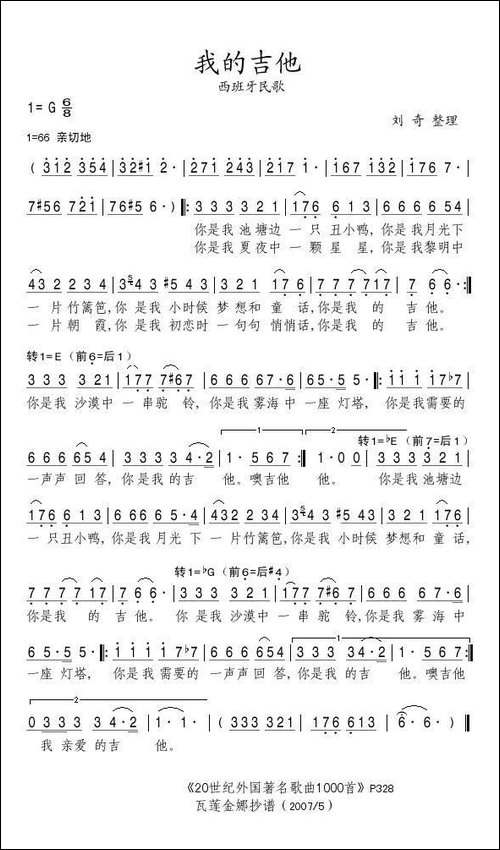 我的吉他
西班牙民歌
1=G 6/8
刘 奇 整理
1=66 亲切地
( 312 354 | 32#1 2· | 271 243 | 217 1· | 167 132 | 176 7·
7#56 721 | 76#5 6· ) ‖: 333 321 | 176 613 | 666 654
你是我 池塘边 一 只 丑小鸭, 你是我月光下
你是我 夏夜中 一 颗 星 星, 你是我黎明中
432 234 | 343 #543 | 321 176 | 777 717 | 7 6 6· :‖
一 片竹篱笆, 你 是我 小时候 梦想和 童 话, 你是我 的 吉 他。
一 片朝 霞, 你 是我 初恋时 一句句 悄悄话, 你是我 的 吉 他。
转1=E (前6=后1)
333 321 | 177 7#67 | 666 67·6 | 65·5 5· ‖: 111 17♭7
你是我 沙漠中 一串驼 铃, 你是我 雾海中 一座 灯塔, 你是我需要的
转1=♭E (前7=后1)
666 654 | 333 34·2 | 1·0333 :‖ 1·00 | 333 321
一声声 回 答, 你是我的吉 他。噢吉他 他。 你是我池塘边
176 613 | 666 65·4 | 432 234 | 343 #543 | 321 176
一 只丑小鸭, 你是我 月光 下 一片竹篱笆, 你是我 小时候 梦想和 童 话,
转1=♭G (前6=后#4)
777 717 | 766· | 333 321 | 177 7#67 | 666 67·6
你是我 的 吉 他。 你 是我 沙漠中 一串驼 铃, 你是我 雾 海中
65·5 5· ‖: 111 17♭7 | 666 654 | 333 34·2 | 1·0333 :‖
一座 灯塔, 你是我 需要的 一声声 回答, 你 是我 的吉 他。噢吉他
0333 34·2 | 1·1· | (333 321 | 176 613 | 6·6·) ‖
我 亲爱 的吉 他。
《20世纪外国著名歌曲1000首》P328
瓦莲金娜抄谱 (2007/5)